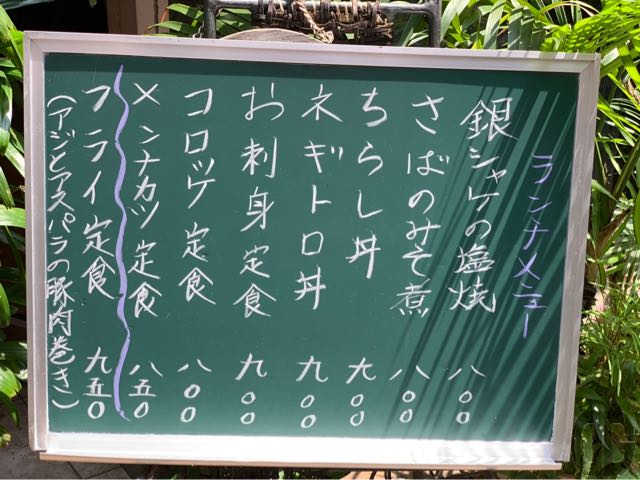 ランチメニュー
銀シャケの塩焼 八〇〇
さばのみそ煮 八〇〇
ちらし丼 九〇〇
ネギトロ丼 九〇〇
お刺身定食 九〇〇
コロッケ定食 八〇〇
メンチカツ定食 八五〇
フライ定食 九五〇
(アジとアスパラの豚肉巻き)